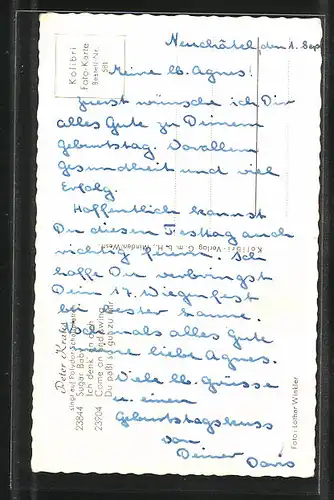 Neuchâtel, den 1. Sept
Meine lb. Agnes!
Zuerst wünsche ich Dir
alles Gute zu Deinem
Geburtstag. Vorallem
gesundheit und viel
Erfolg.
Hoffentlich kannst
Du diesen Festtag auch
richtig feiern. Ich
hoffe Du verbringst
Dein 17. Wiegenfest
bei bester Laune.
Nochmals alles Gute
meine liebe Agnes.
Viele lb. Grüsse
u. einen
Geburtstagskuss
von
Deiner
Doris
Kolibri
Foto-Karte
Bestell-Nr.
581
Kolibri-Verlag G.m.b.H., Minden/Westf.
Peter Kraus
singt auf Polydor-Schallplatten
23844 Sugar Baby
Ich denk an dich
23904 Come on and swing
Du paßt so gut zu mir
Foto: Lothar Winkler